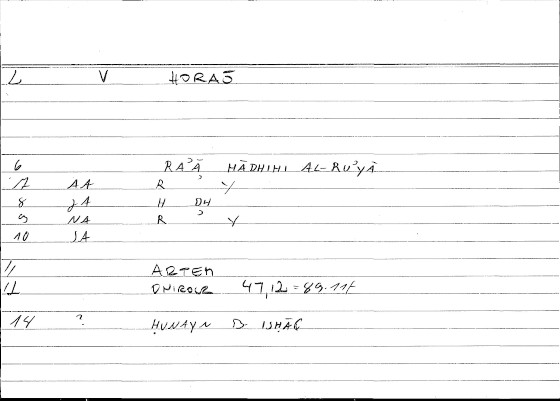 L V HORAŠ
6 RAʾĀ HĀDHIHI AL-RUʾYĀ
7 AA R ʾ Y
8 2A H DH
9 NA R ʾ Y
10 SA
11 ARTEM
12 ONIROCR 47,12 = 89.11f
14 ? ḤUNAYN B. ISḤĀḲ